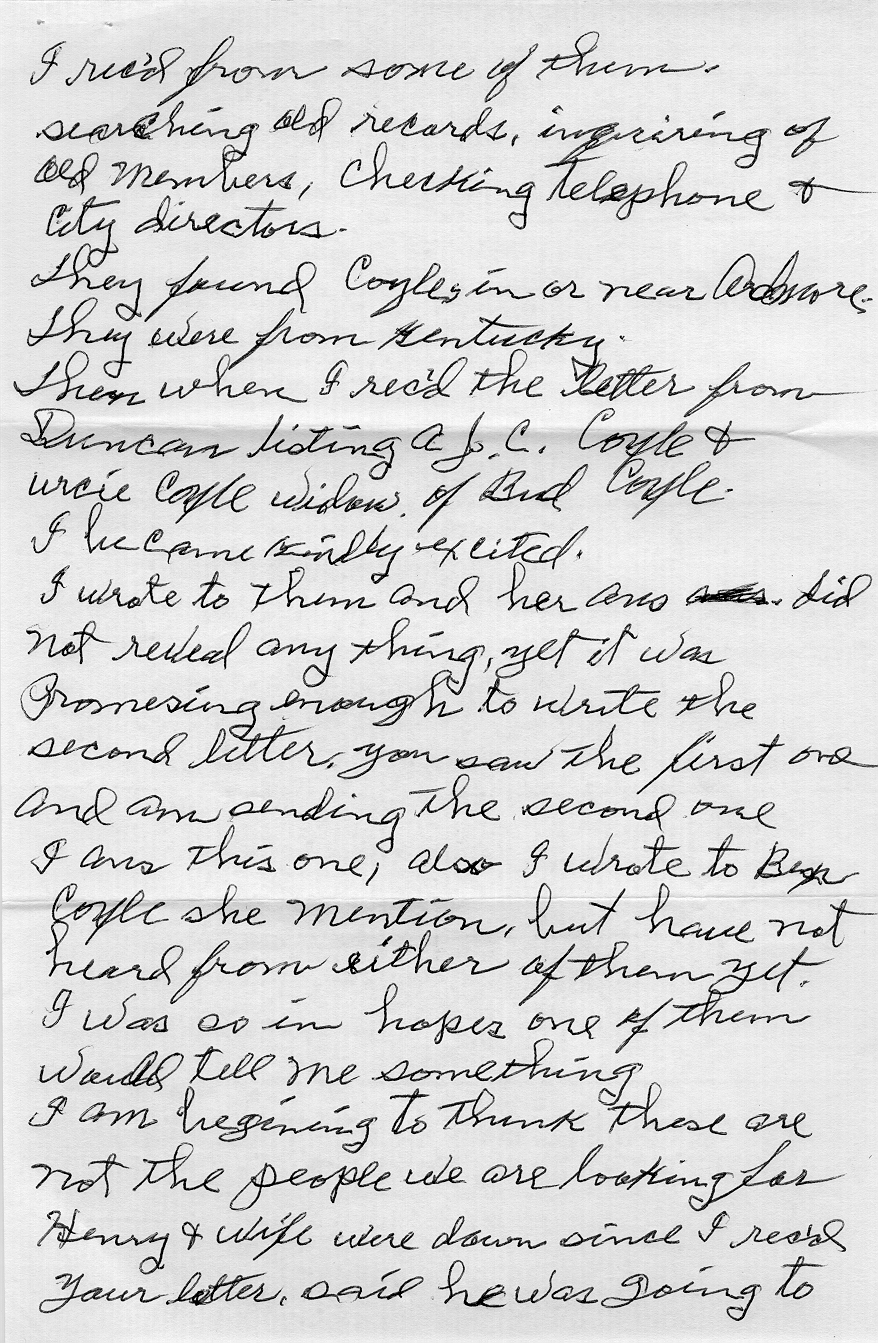 I rec'd from some of them.
searching old records, inquiring of
old members, checking telephone &
city directors.
They found Coyles, in or near Ardmore.
They were from Kentucky.
Then when I rec'd the letter from
Duncan listing a J. C. Coyle &
urcie Coyle widow. of Bud Coyle.
I became kindly excited.
I wrote to them and her ans did
not reveal any thing, yet it was
Promesing enough to write the
second letter. you saw the first one
and am sending the second one
I ans this one, also I wrote to
Coyle she mention, but have not
heard from either of them yet.
I was so in hopes one of them
would tell me something
I am begining to think these are
not the people we are looking for
Henry & wife were down since I rec'd
your letter. said he was going to